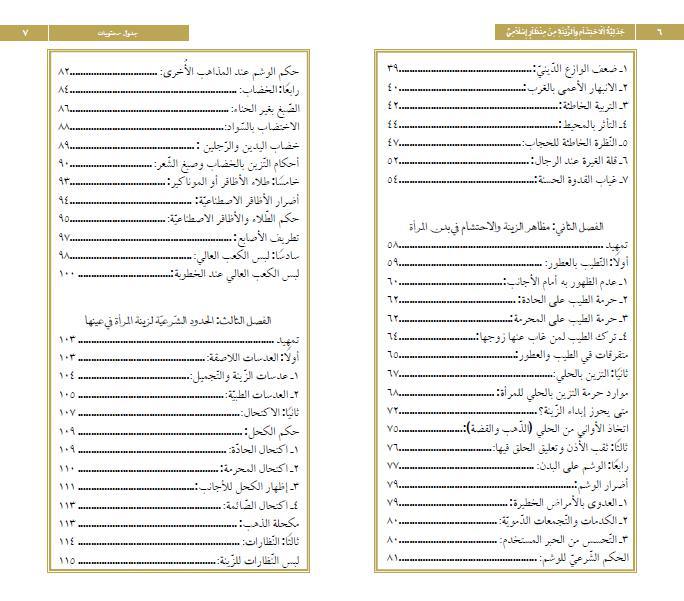 ٦ جدليّة الاحتشام والزّينة من منظار إسلاميّ
١ـ ضعف الوازع الدّينيّ: ٣٩
٢ـ الانبهار الأعمى بالغرب: ٤٠
٣ـ التربية الخاطئة: ٤٢
٤ـ التأثر بالمحيط: ٤٤
٥ـ النّظرة الخاطئة للحجاب: ٤٧
٦ـ قلة الغيرة عند الرجال: ٥٢
٧ـ غياب القدوة الحسنة: ٥٤
الفصل الثاني: مظاهر الزينة والاحتشام في بدن المرأة
تمهيد ٥٨
أولًا: التّطيب بالعطور: ٥٩
١ـ عدم الظهور به أمام الأجانب: ٦٠
٢ـ حرمة الطيب على الحادة: ٦٢
٣ـ حرمة الطيب على المحرمة: ٦٢
٤ـ ترك الطيب لمن غاب عنها زوجها: ٦٤
متفرقات في الطيب والعطور: ٦٥
ثانيًا: التزين بالحلي: ٦٧
موارد حرمة التزين بالحلي للمرأة: ٦٨
متى يجوز إبداء الزّينة؟ ٧٢
اتخاذ الأواني من الحلي (الذّهب والفضة): ٧٥
ثالثًا: ثقب الأذن وتعليق الحلق فيها: ٧٦
رابعًا: الوشم على البدن: ٧٧
أضرار الوشم: ٧٩
١ـ العدوى بالأمراض الخطيرة: ٧٩
٢ـ الكدمات والتّجمعات الدّمويّة: ٨٠
٣ـ التّحسس من الحبر المستخدم: ٨٠
الحكم الشّرعيّ للوشم: ٨١
جدول محتويات ٧
حكم الوشم عند المذاهب الأُخرى: ٨٢
رابعًا: الخضاب: ٨٤
الصّبغ بغير الحناء: ٨٦
الاختضاب بالسّواد: ٨٨
خضاب اليدين والرّجلين: ٨٩
أحكام التّزين بالخضاب وصبغ الشّعر: ٩٠
خامسًا: طلاء الأظافر أو الموناكير: ٩٣
أضرار الأظافر الاصطناعيّة: ٩٤
حكم الطّلاء والأظافر الاصطناعيّة: ٩٥
تطريف الأصابع: ٩٧
سادسًا: لبس الكعب العالي: ٩٨
لبس الكعب العالي عند الخطوبة: ١٠٠
الفصل الثالث: الحدود الشّرعيّة لزينة المرأة في عينها
تمهيد ١٠٣
أولًا: العدسات اللاصقة: ١٠٣
١ـ عدسات الزّينة والتّجميل: ١٠٤
٢ـ العدسات الطبيّة: ١٠٥
ثانيًا: الاكتحال: ١٠٧
حكم الكحل: ١٠٩
١ـ اكتحال الحادّة: ١٠٩
٢ـ اكتحال المحرمة: ١١٠
٣ـ إظهار الكحل للأجانب: ١١١
٤ـ اكتحال الصّائمة: ١١٣
مكحلة الذهب: ١١٣
ثالثًا: النّظارات: ١١٤
لبس النّظارات للزّينة: ١١٥